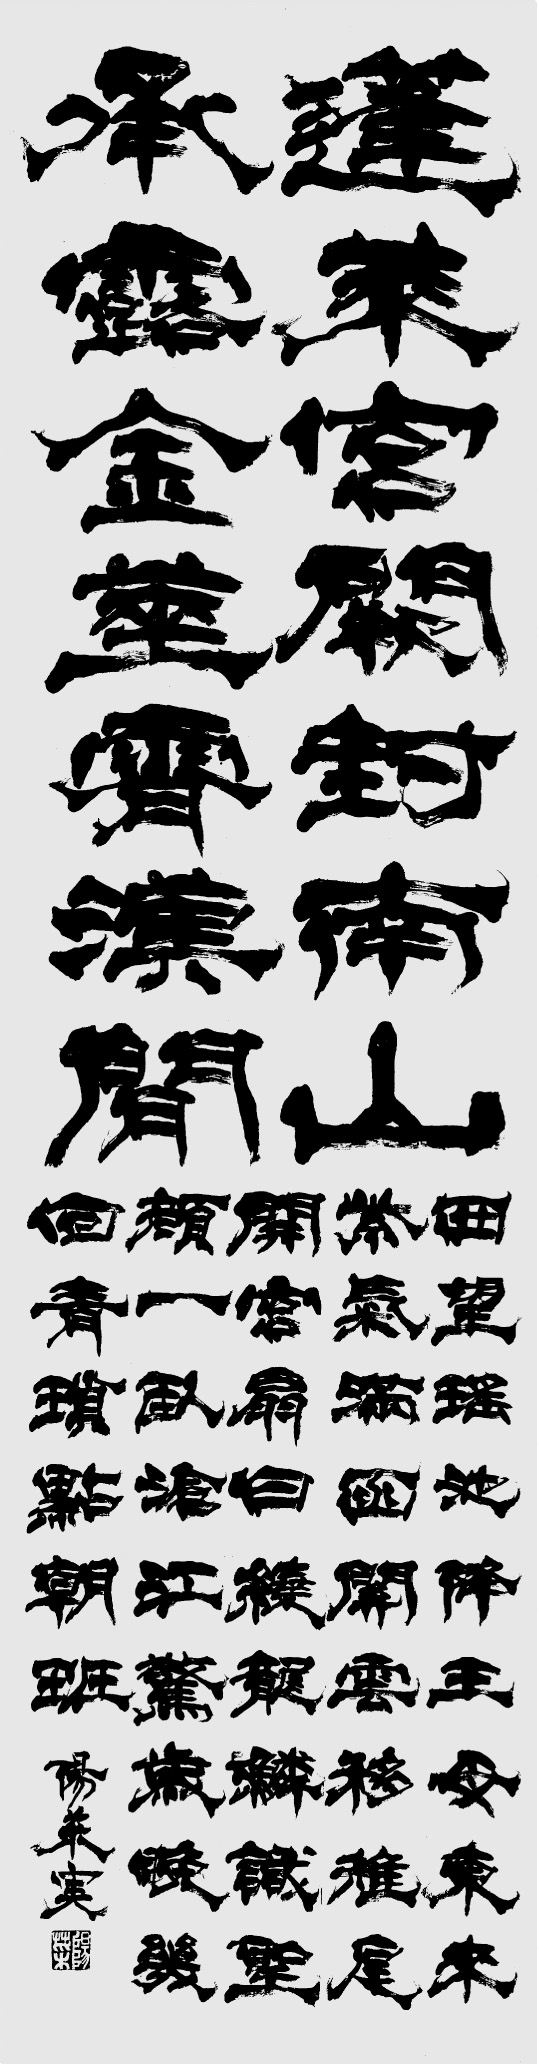 蓬萊宮闕對南山
承露金莖霄漢間
西望瑤池降王母東來
紫氣滿函關雲移雉尾
開宮扇日繞龍鱗識聖
顏一臥滄江驚歲晚幾
回青瑣點朝班
陽